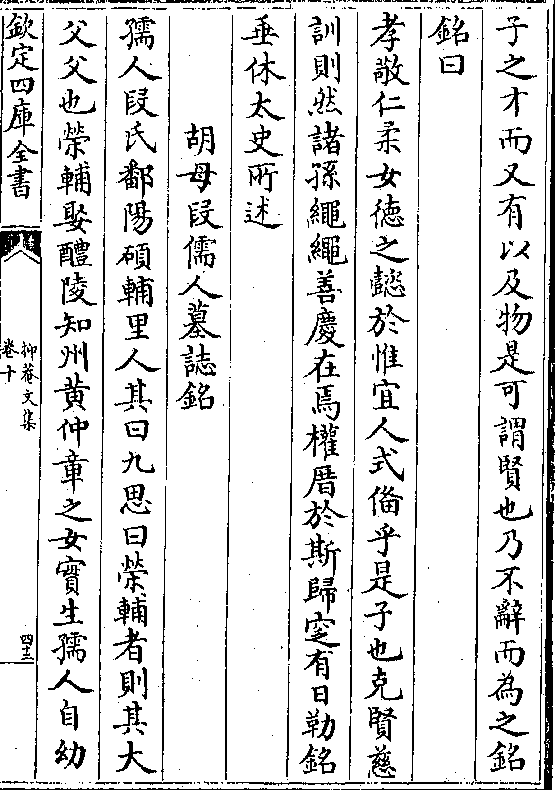 子之才而又有以及物是可謂賢也乃不辭而為之銘
銘曰
孝敬仁柔女徳之懿於惟宜人式備乎是子也克賢慈
訓則然諸孫繩繩善慶在焉權厝於斯歸窆有日勒銘
垂休太史所述
胡母段儒人墓誌銘
孺人段氏鄱陽碩輔里人其曰九思曰榮輔者則其大
父父也榮輔娶醴陵知州黄仲章之女實生孺人自幼
欽定四庫全書
抑菴文集
卷十
四十三